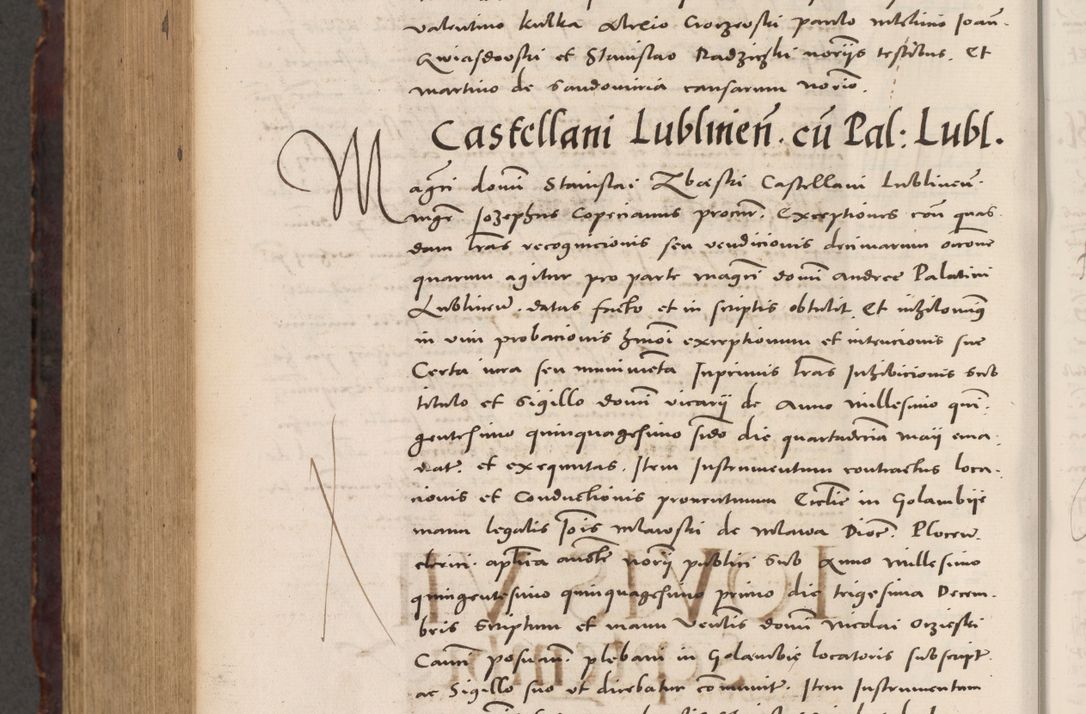 valentino kulka Alexio Crorzewski paulo mielino Joañ.
Gwiasdowski et Stanislao Radzięski noriis testibus. Et
martino de Sandomiria causarum norio.
Castellani Lublineñ. cū Pal: Lubl.
Magci domi Stanislai Zbąski Castellani Lublineñ.
mgr Jozephus Copecianus procur. Exceptiones con quas
dam lras recognicionis seu vendicionis decimarum occone
quarum agitur pro parte magci domi Andree Palatini
Lublineñ. datas facto et in scriptis obtulit. Et nihilominus
in vim probacionis hmoi exceptionum et intencionis sue
Certa iura seu munimeta Inprimis lras Inhibicionis sub
titulo et Sigillo domi vicarii de Anno Millesimo quin
gentesimo quinquagesimo sedo die quartadecia maii ema
nat. et exequutas. Item Instrumentum contractus loca
cionis et Conductionis proventuum Ecclie in Golambiie
manu legalis Jois mlawski de mlawa Dioc. Plocen.
clerici. aplica auctte norii publici sub Anno millesimo
quingentesimo quinquagesimo primo die trigesima Decem
bris Scriptum et manu Ventis domi Nicolai Orzieski
Canci posnan. plebani in Golambie locatoris subscript.
ac Sigillo suo ut dicebatur communit. Item Instrumentum